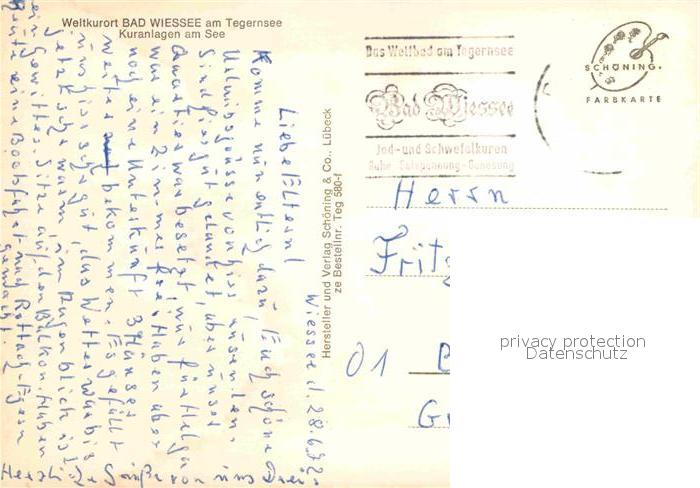 Weltkurort BAD WIESSEE am Tegernsee
Kuranlagen am See
Das Weltbad am Tegernsee
Bad Wiessee
Jod- und Schwefelkuren
Ruhe-Entspannung-Genesung
SCHÖNING
FARBKARTE
Hersteller und Verlag Schöning & Co., Lübeck
ze Bestellnr. Teg 580-f
Wiessee d. 28.6.72
Liebe Eltern!
Komme nun entlich dazu, Euch schöne
Urlaubsgrüsse von hier zu senden.
Sind hier gut gelandet, aber unser
Quartier war besetzt, nur für Helga
war ein Zimmer frei. Haben aber
noch eine Unterkunft 3 Häuser
weiter bekommen. Es gefällt
uns hier sehr gut, das Wetter war bis
jetzt sehr warm, im Augenblick ist
ein Gewitter. Sitze auf den Balkon. Haben
Heute eine Bootsfahrt nach Rottach-Egern
gemacht.
Herzliche Grüße von uns Drei
Herrn
Fritz
01
privacy protection
Datenschutz